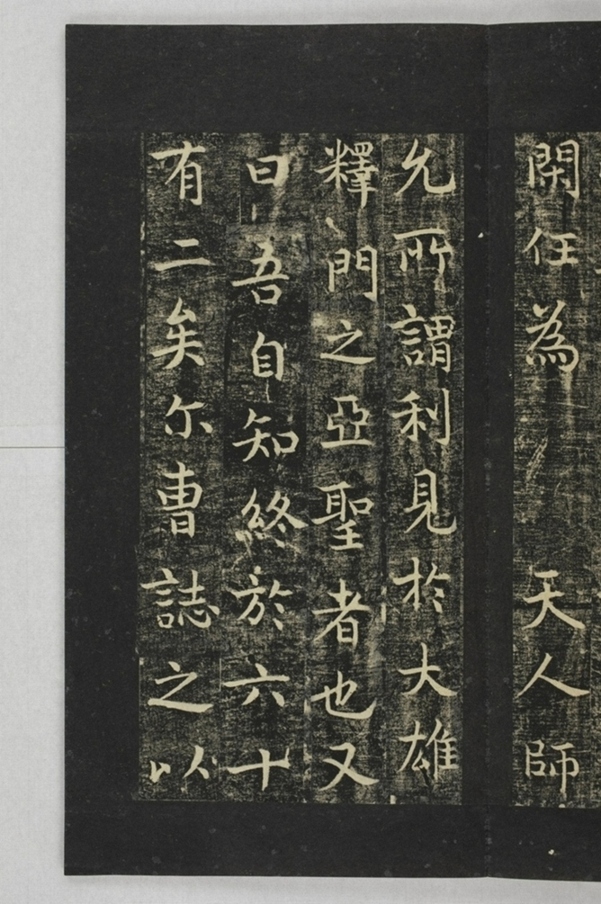 閑任為天人師
允所謂利見於大雄
釋門之亞聖者也又
曰吾自知終於六十
有二矣尒曹誌之以